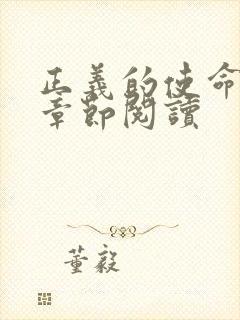 正義的使命
章節閱讀
董毅